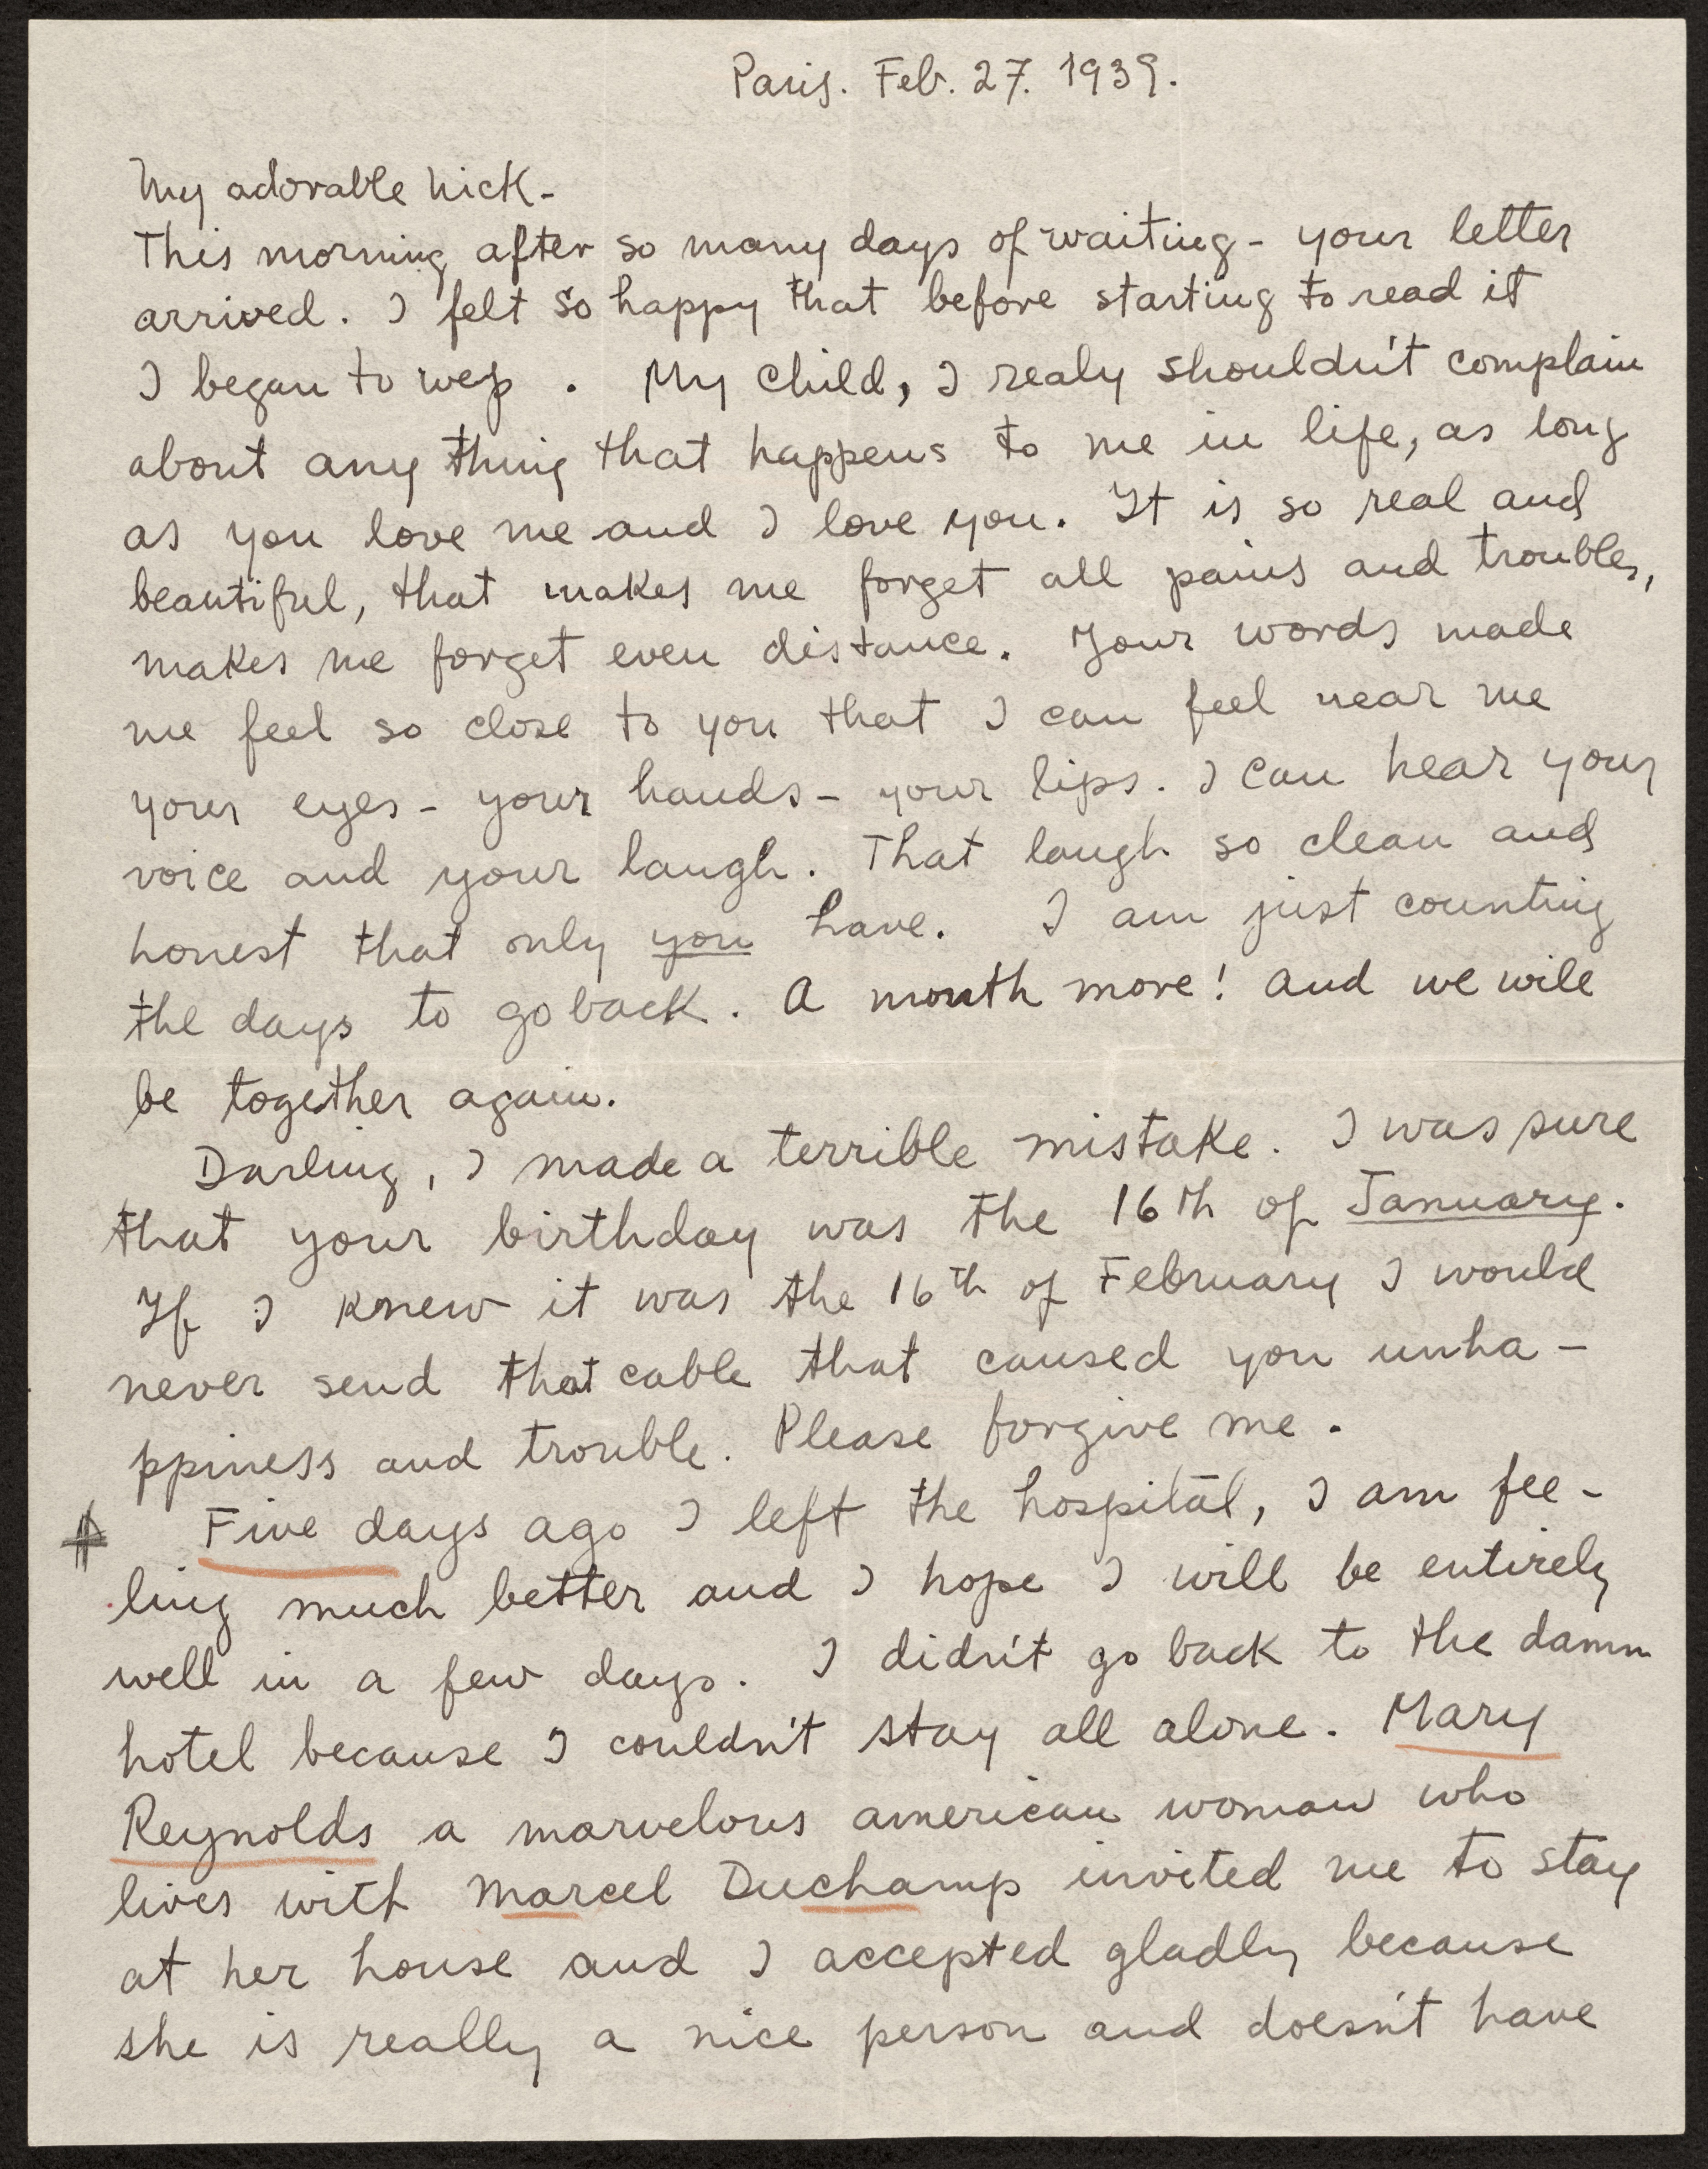 Paris. Feb. 27. 1939.
My adorable Nick-
This morning after so many days of waiting - your letter
arrived. I felt so happy that before starting to read it
I began to wep . My child, I realy shouldn't complain
about any thing that happens to me in life, as long
as you love me and I love you. It is so real and
beautiful, that makes me forget all pains and troubles,
makes me forget even distance. Your words made
me feel so close to you that I can feel near me
your eyes - your hands - your lips. I can hear your
voice and your laugh. That laugh so clean and
honest that only you have. I am just counting
the days to go back. A month more! and we will
be together again.
Darling, I made a terrible mistake. I was sure
that your birthday was the 16th of January.
If I knew it was the 16th of February I would
never send that cable that caused you unha-
ppiness and trouble. Please forgive me.
Five days ago I left the hospital, I am fee-
ling much better and I hope I will be entirely
well in a few days. I didn't go back to the damn
hotel because I couldn't stay all alone. Mary
Reynolds a marvelous american woman who
lives with Marcel Duchamp invited me to stay
at her house and I accepted gladly because
she is really a nice person and doesn't have